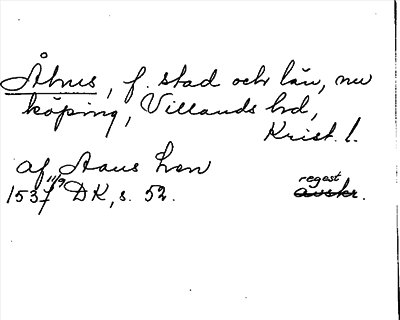 Åhus, f. stad och län, nu
köping, Villands hd,
Krist. l.
af Aaus hen
regest
1537 11/9 DK, s. 52. avskr.